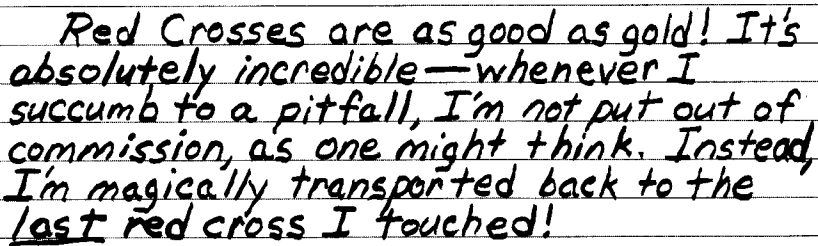 Red Crosses are as good as gold! It's
absolutely incredible—whenever I
succumb to a pitfall, I'm not put out of
commission, as one might think. Instead,
I'm magically transported back to the
last red cross I touched!